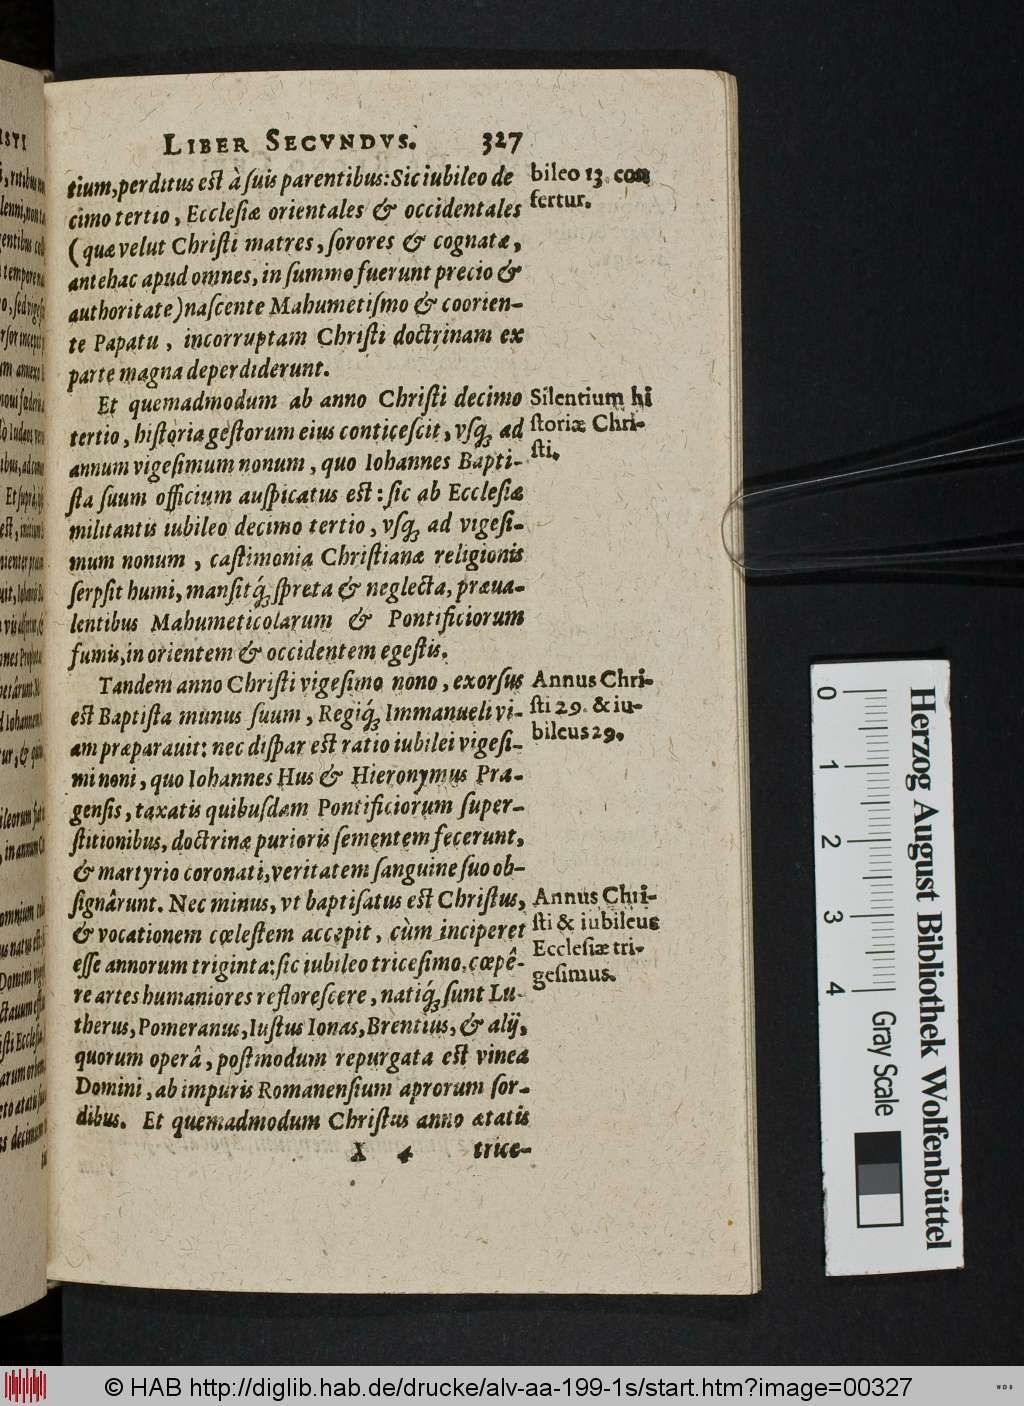 LIBER SECVNDVS. 327
tium, perditus est à suis parentibus: Sic iubileo de
cimo tertio, Ecclesiæ orientales & occidentales
(quæ velut Christi matres, sorores & cognatæ,
antehac apud omnes, in summo fuerunt precio &
authoritate) nascente Mahumetismo & coorien-
te Papatu, incorruptam Christi doctrinam ex
parte magna deperdiderunt.
bileo 13. con
fertur.
Et quemadmodum ab anno Christi decimo
tertio, historia gestorum eius conticescit, vsq́; ad
annum vigesimum nonum, quo Iohannes Bapti-
sta suum officium auspicatus est: sic ab Ecclesiæ
militantis iubileo decimo tertio, vsq́; ad vigesi-
mum nonum, castimonia Christianæ religionis
serpsit humi, mansitq́; spreta & neglecta, præua-
lentibus Mahumeticolarum & Pontificiorum
fumis, in orientem & occidentem egestis.
Silentium hi
storiæ Chri-
sti.
Tandem anno Christi vigesimo nono, exorsus
est Baptista munus suum, Regiq́; Immanueli vi-
am præparauit: nec dispar est ratio iubilei vigesi-
mi noni, quo Iohannes Hus & Hieronymus Pra-
gensis, taxatis quibusdam Pontificiorum super-
stitionibus, doctrinæ purioris sementem fecerunt,
& martyrio coronati, veritatem sanguine suo ob-
signârunt. Nec minus, vt baptisatus est Christus,
& vocationem cœlestem accepit, cùm inciperet
esse annorum triginta: sic iubileo tricesimo, cœpê-
re artes humaniores reflorescere, natiq́; sunt Lu-
therus, Pomeranus, Iustus Ionas, Brentius, & alij,
quorum operâ, postmodum repurgata est vinea
Domini, ab impuris Romanensium aprorum sor-
dibus. Et quemadmodum Christus anno ætatis
X 4 trice-
Annus Chri-
sti 29. & iu-
bileus 29.
Annus Chri-
sti & iubileus
Ecclesiæ tri-
gesimus.
0 1 2 3 4 Gray Scale
Herzog August Bibliothek Wolfenbüttel
© HAB http://diglib.hab.de/drucke/alv-aa-199-1s/start.htm?image=00327